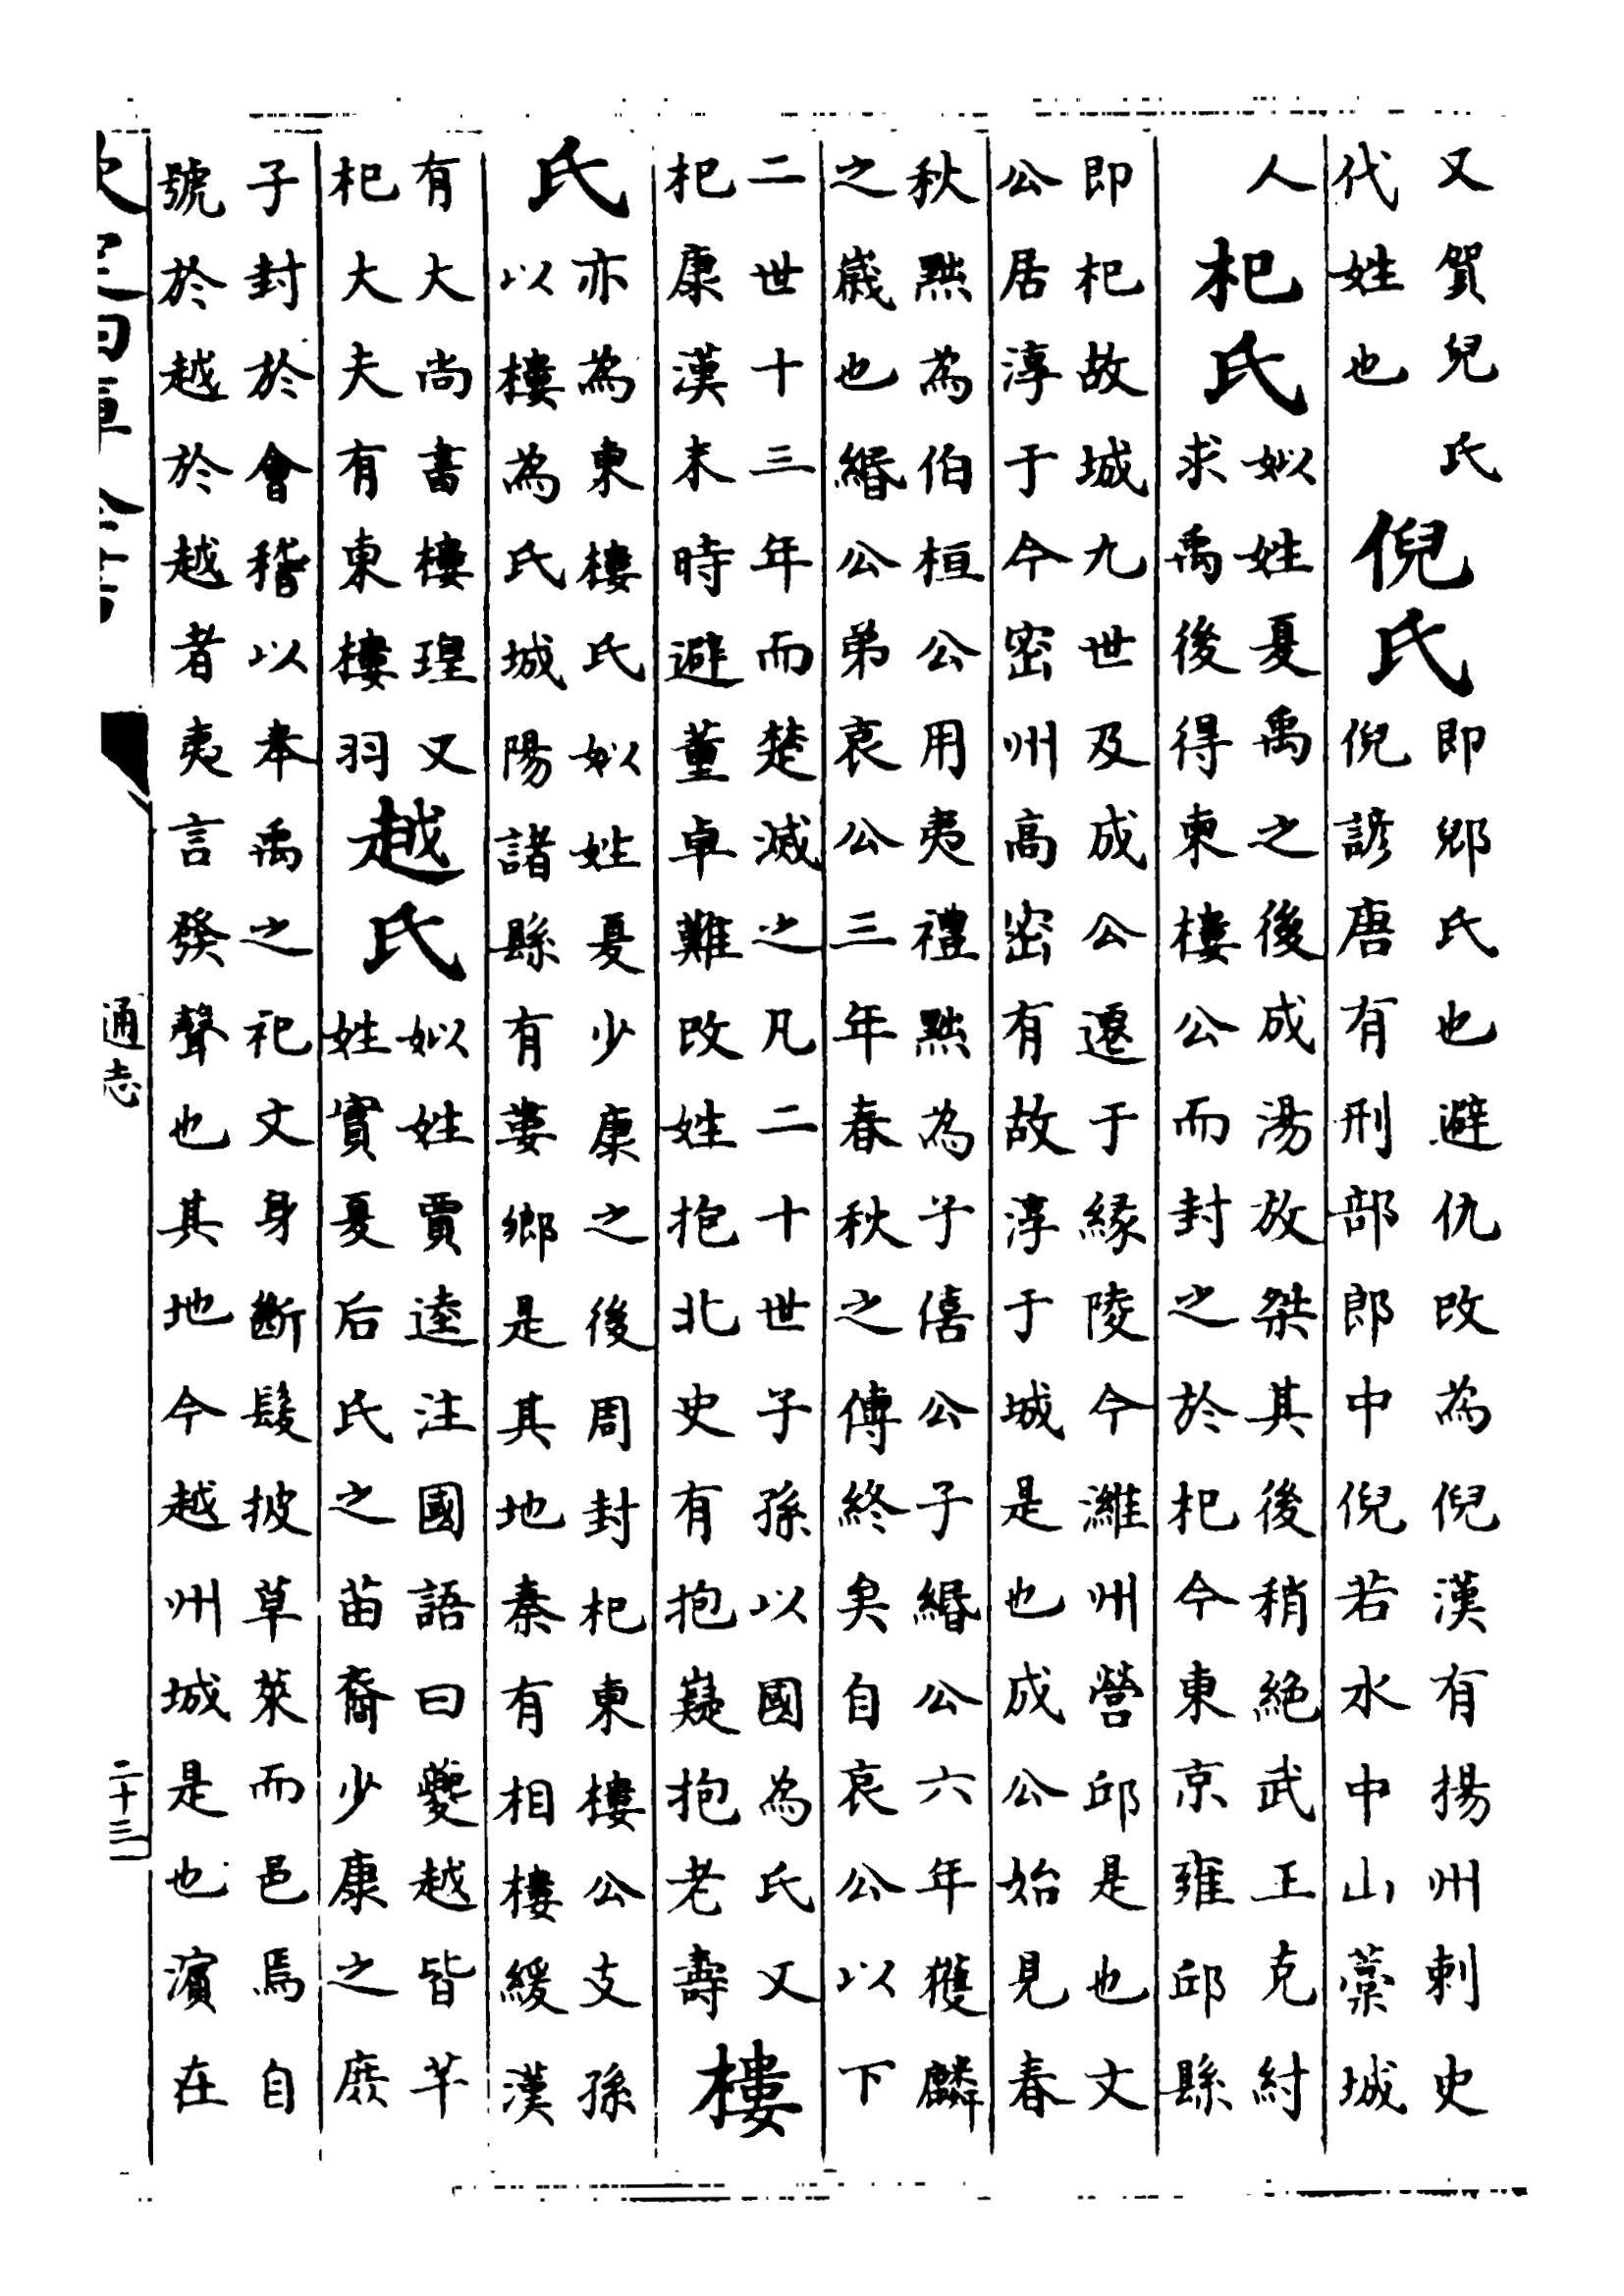 又賀兒氏
代姓也
倪氏
即郳氏也避仇改為倪漢有揚州刺史
倪諺唐有刑部郎中倪若水中山藁城
人
杞氏
姒姓夏禹之後成湯放桀其後稍絶武王克紂
求禹後得東樓公而封之於杞今東京雍邱縣
即杞故城九世及成公遷于緣陵今濰州營邱是也文
公居淳于今密州高密有故淳于城是也成公始見春
秋黜為伯桓公用夷禮黜為子僖公子緡公六年獲麟
之歲也緡公弟哀公三年春秋之傳終矣自哀公以下
二世十三年而楚滅之凡二十世子孫以國為氏又
杞康漢末時避董卓難改姓抱北史有抱嶷抱老壽
樓
氏
亦為東樓氏姒姓夏少康之後周封杞東樓公支孫
以樓為氏城陽諸縣有婁鄉是其地秦有相樓緩漢
有大尚書樓瑝又
杞大夫有東樓羽
越氏
姒姓賈逵注國語曰夔越皆芊
姓實夏后氏之苗裔少康之庶
子封於會稽以奉禹之祀文身斷髮披草萊而邑焉自
號於越於越者夷言發聲也其地今越州城是也濱在
欽定四庫全書
通志
二十三